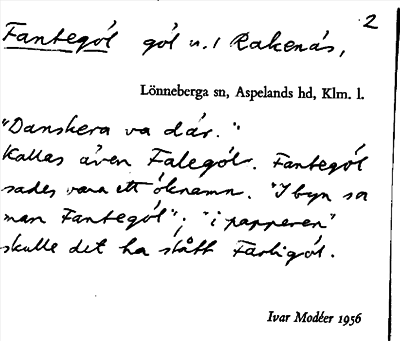 2
Fantegöl göl n. 1 Rakenäs,
Lönneberga sn, Aspelands hd, Klm. l.
"Danskera va där."
Kallas även Falegöl. Fantegöl
sades vara ett öknamn. "I byn sa
man Fantegöl"; "i papperen"
skulle det ha stått Farligöl.
Ivar Modéer 1956